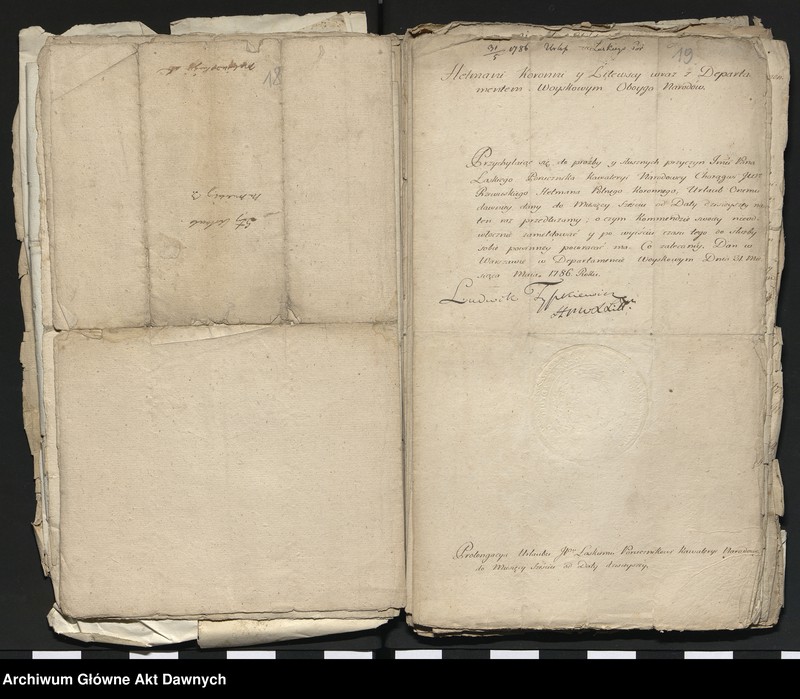 18
31/5 1786 Urlop
19.
Hetmani Koronni y Litewscy wraz z Departa
mentem Woyskowym Oboyga Narodow.
Przychylaiąc się do prożby y słusznych przyczyn Jmć Pana
Łaskiego Porucznika Kawaleryi Narodowy Chorągwi JW
Rzewuskiego Hetmana Polnego Koronnego, Urlaub
dawniey dany do Miesięcy Sześciu od Daty dzisieyszey na
ten raz przedłużamy, o czym Kommendzie swoiey nieod
włocznie zameldować y po wyiściu czasu tego do służby
sobie powinney powracać ma. Co zalecamy. Dan w
Warszawie w Departamencie Woyskowym Dnia 31 Mie
siąca Maia. 1786. Roku.
Ludwik Tyszkiewicz
HPWXLitt.
Prolongacya Urlaubu Łaskiemu Porucznikowi Kawaleryi Narodowey
do Miesięcy Sześciu od Daty dzisieyszey.
Archiwum Główne Akt Dawnych